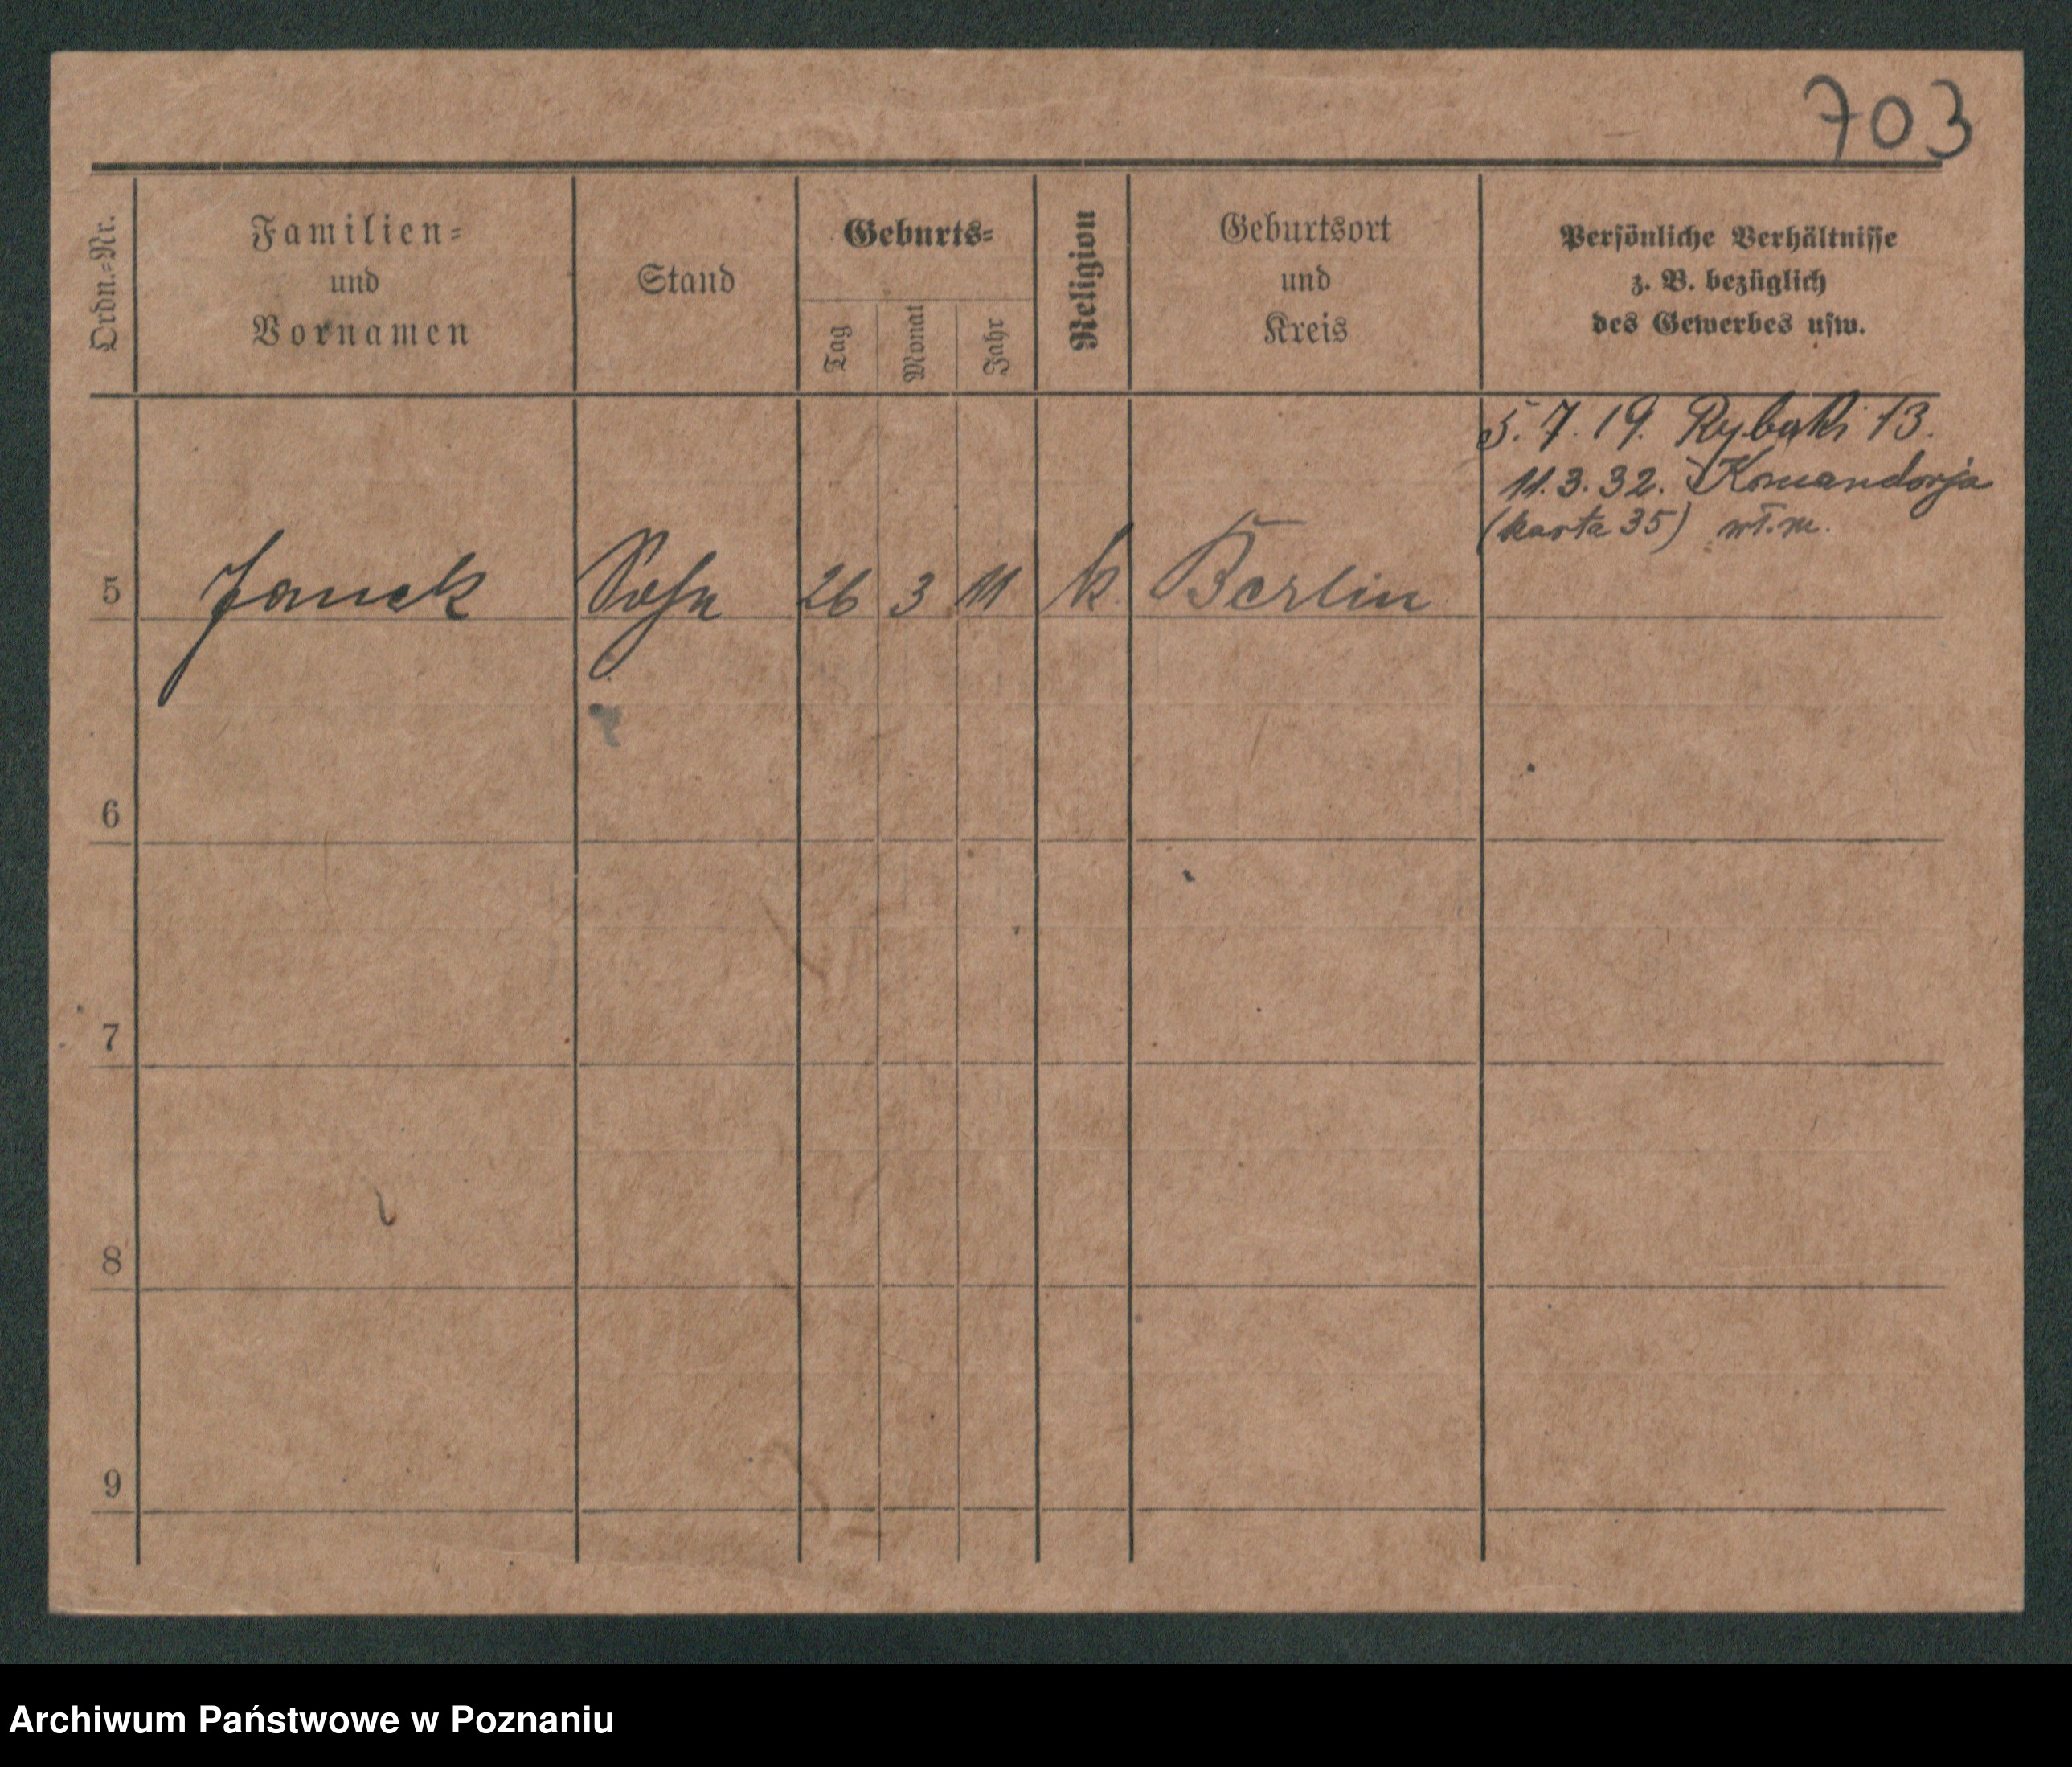 703
Ordn.=Nr.
Familien=
und
Vornamen
Stand
Geburts=
Tag
Monat
Jahr
Religion
Geburtsort
und
Kreis
Persönliche Verhältnisse
z. B. bezüglich
des Gewerbes usw.
5. 7. 19. Rybaki 13.
11. 3. 32. Komandorja
(karta 35) wł. m.
5 Janek Sohn 26 3 11 k. Berlin
6
7
8
9
Archiwum Państwowe w Poznaniu